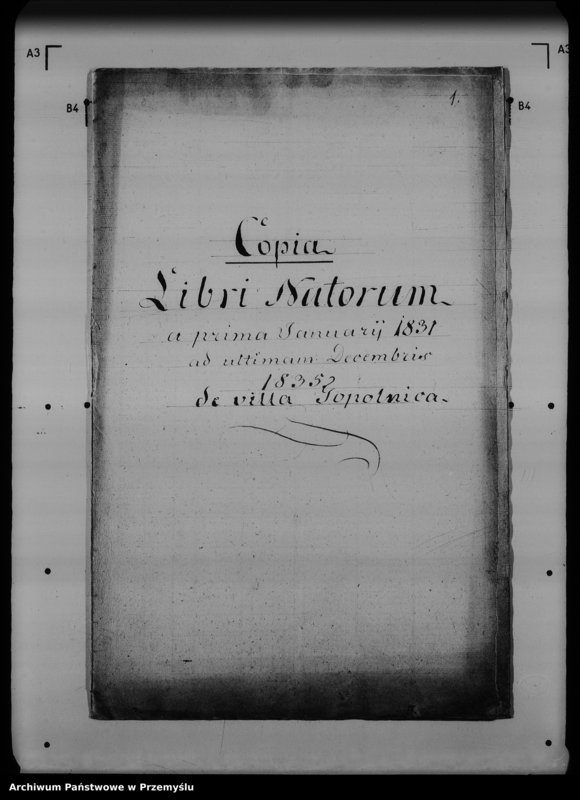 A3
A3
B4
B4
1.
Copia
Libri Natorum
a prima Januarÿ 1831
ad ultimam Decembris
1835
de villa Topolnica.
Archiwum Państwowe w Przemyślu